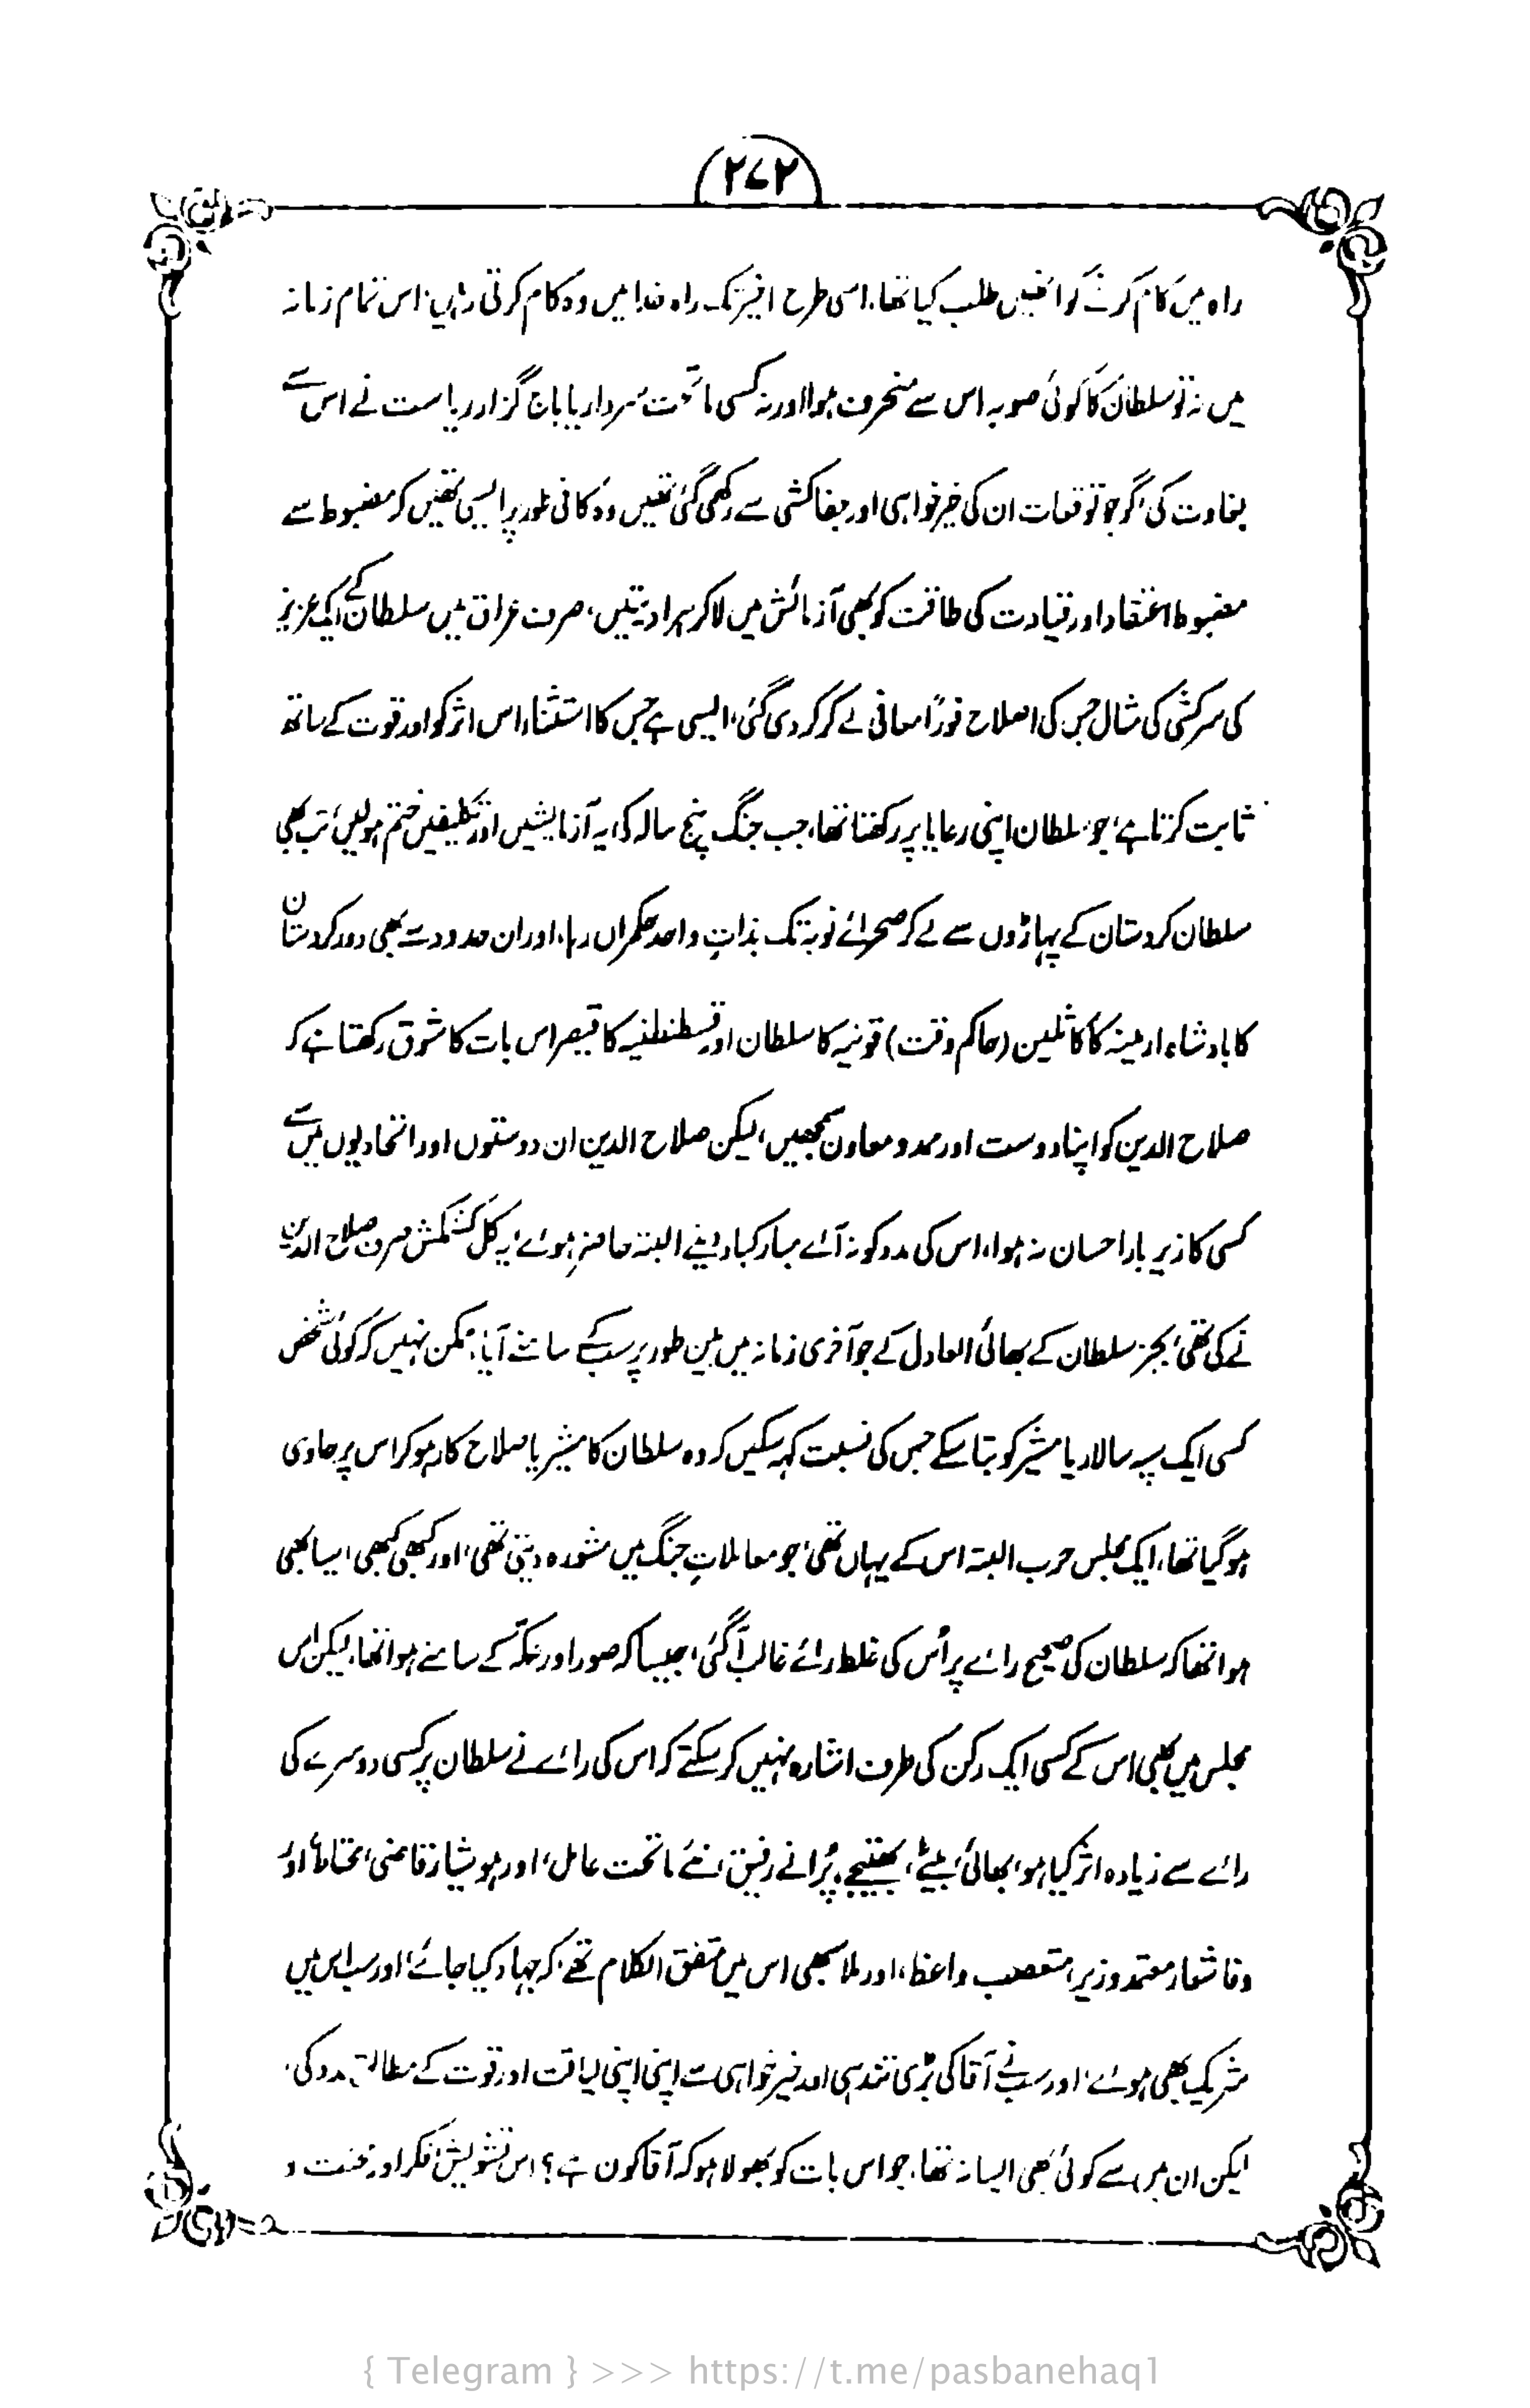 ۲۷۲
راہ میں کام کرنے کو انھیں طلب کیا تھا، اسی طرح اخیر تک راہ خدا میں وہ کام کرتی رہیں، اس تمام زمانہ
میں نہ تو سلطان کا کوئی صوبہ اس سے منحرف ہوا اور نہ کسی ماتحت سردار یا باج گزار ریاست نے اس سے
بغاوت کی، گر جو توقعات ان کی خیر خواہی اور جفاکشی سے رکھی گئی تھیں وہ کافی طور پر ایسی تھیں کہ مضبوط سے
مضبوط اعتقاد اور قیادت کی طاقت کو بھی آزمائش میں لا کر ہرا دیتیں، صرف عراق میں سلطان کے ایک عزیز
کی سرکشی کی مثال جس کی اصلاح فوراً معافی لے کر کر دی گئی، ایسی ہے جس کا استثناء اس اثر کو اور قوت کے ساتھ
ثابت کرتا ہے، جو سلطان اپنی رعایا پر رکھتا تھا، جب جنگ پنج سالہ کی یہ آزمایشیں اور تکلیفیں ختم ہولیں، تب بھی
سلطان کردستان کے پہاڑوں سے لے کر صحرائے نوبہ تک بذاتِ واحد حکمراں رہا، اور ان حدود سے بھی دور کردستان
کا بادشاہ، ارمینہ کا کاثلین (حاکم وقت) قونیہ کا سلطان اور قسطنطنیہ کا قیصر اس بات کا شوق رکھتا ہے کہ
صلاح الدین کو اپنا دوست اور ممد و معاون سمجھیں، لیکن صلاح الدین ان دوستوں اور اتحادیوں میں سے
کسی کا زیر بار احسان نہ ہوا، اس کی مدد کو نہ آئے مبارکباد دینے البتہ حاضر ہوئے، یہ کل کشمکش صرف صلاح الدین
نے کی تھی، بجز سلطان کے بھائی العادل کے جو آخری زمانہ میں مبین طور پر سب کے سامنے آیا، ممکن نہیں کہ کوئی شخص
کسی ایک سپہ سالار یا مشیر کو بتا سکے جس کی نسبت کہہ سکیں کہ وہ سلطان کا مشیر یا صلاح کار ہو کر اس پر حاوی
ہو گیا تھا، ایک مجلس حرب البتہ اس کے یہاں تھی، جو معاملاتِ جنگ میں مشورہ دیتی تھی، اور کبھی کبھی ایسا بھی
ہوا تھا کہ سلطان کی صحیح رائے پر اُس کی غلط رائے غالب آ گئی، جیسا کہ صور اور عکہ کے سامنے ہوا تھا، لیکن اس
مجلس میں بھی اس کے کسی ایک رکن کی طرف اشارہ نہیں کر سکتے کہ اس کی رائے نے سلطان پر کسی دوسرے کی
رائے سے زیادہ اثر کیا ہو، بھائی، بیٹے، بھتیجے، پُرانے رفیق، نئے ماتحت عامل، اور ہوشیار قاضی، محتاط اور
وفا شعار معتمد وزیر، متعصب واعظ، اور ملا سبھی اس میں متفق الکلام تھے، کہ جہاد کیا جائے، اور سب اس میں
شریک بھی ہوئے، اور سب نے آقا کی بڑی تندہی اور خیر خواہی سے اپنی اپنی لیاقت اور قوت کے مطابق مدد کی،
لیکن ان میں سے کوئی بھی ایسا نہ تھا، جو اس بات کو بھولا ہو کہ آقا کون ہے؟ اس تشویش، فکر اور محنت و
{ Telegram } >>> https://t.me/pasbanehaq1